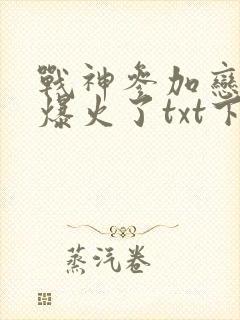 戰神參加戀
爆火了txt下
蒸汽卷